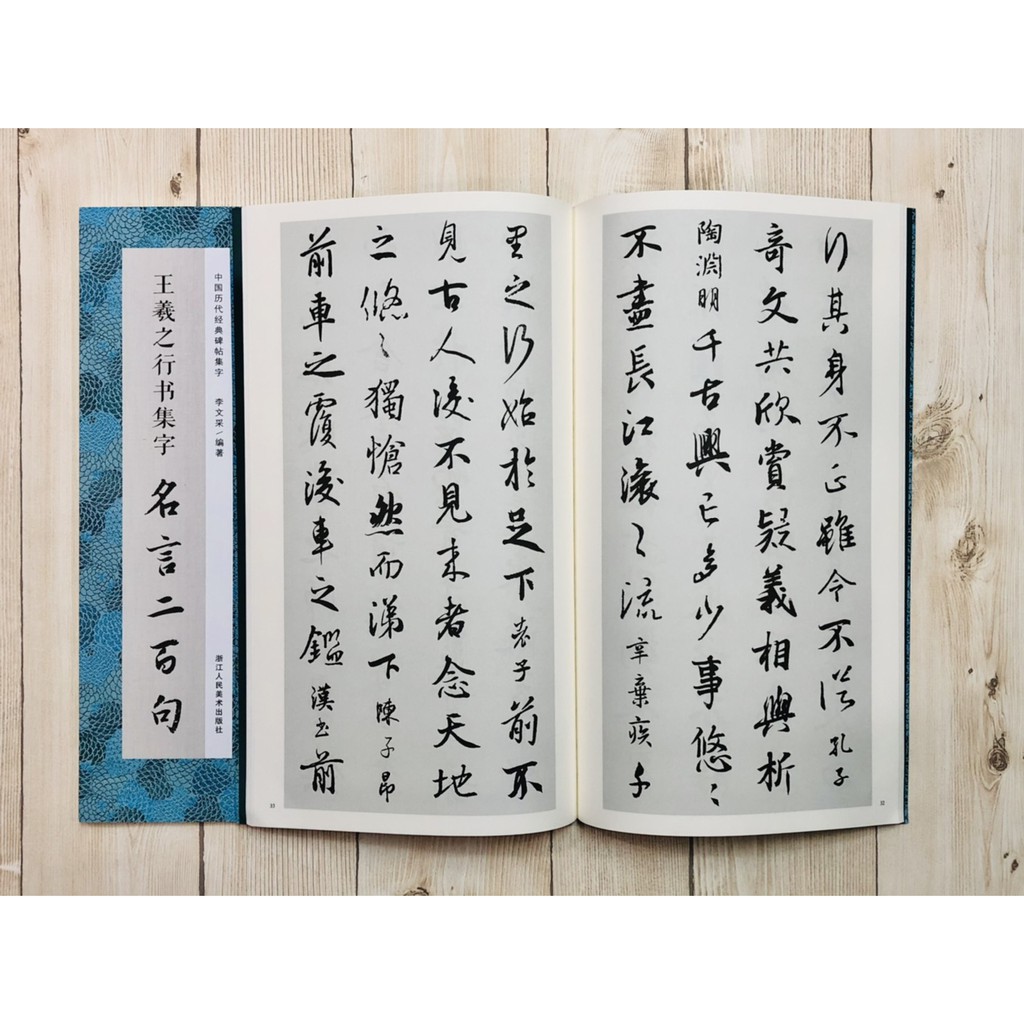 中国历代经典碑帖集字 李文采/编著 浙江人民美术出版社
王羲之行书集字 名言二百句
行其身不正雖令不從 孔子
奇文共欣賞疑義相與析
陶淵明 千古興亡多少事悠〻
不盡長江滚〻流 辛棄疾 千
里之行始於足下 老子 前不
見古人後不見来者念天地
之悠〻獨愴然而涕下 陳子昂
前車之覆後車之鑑 漢書 前